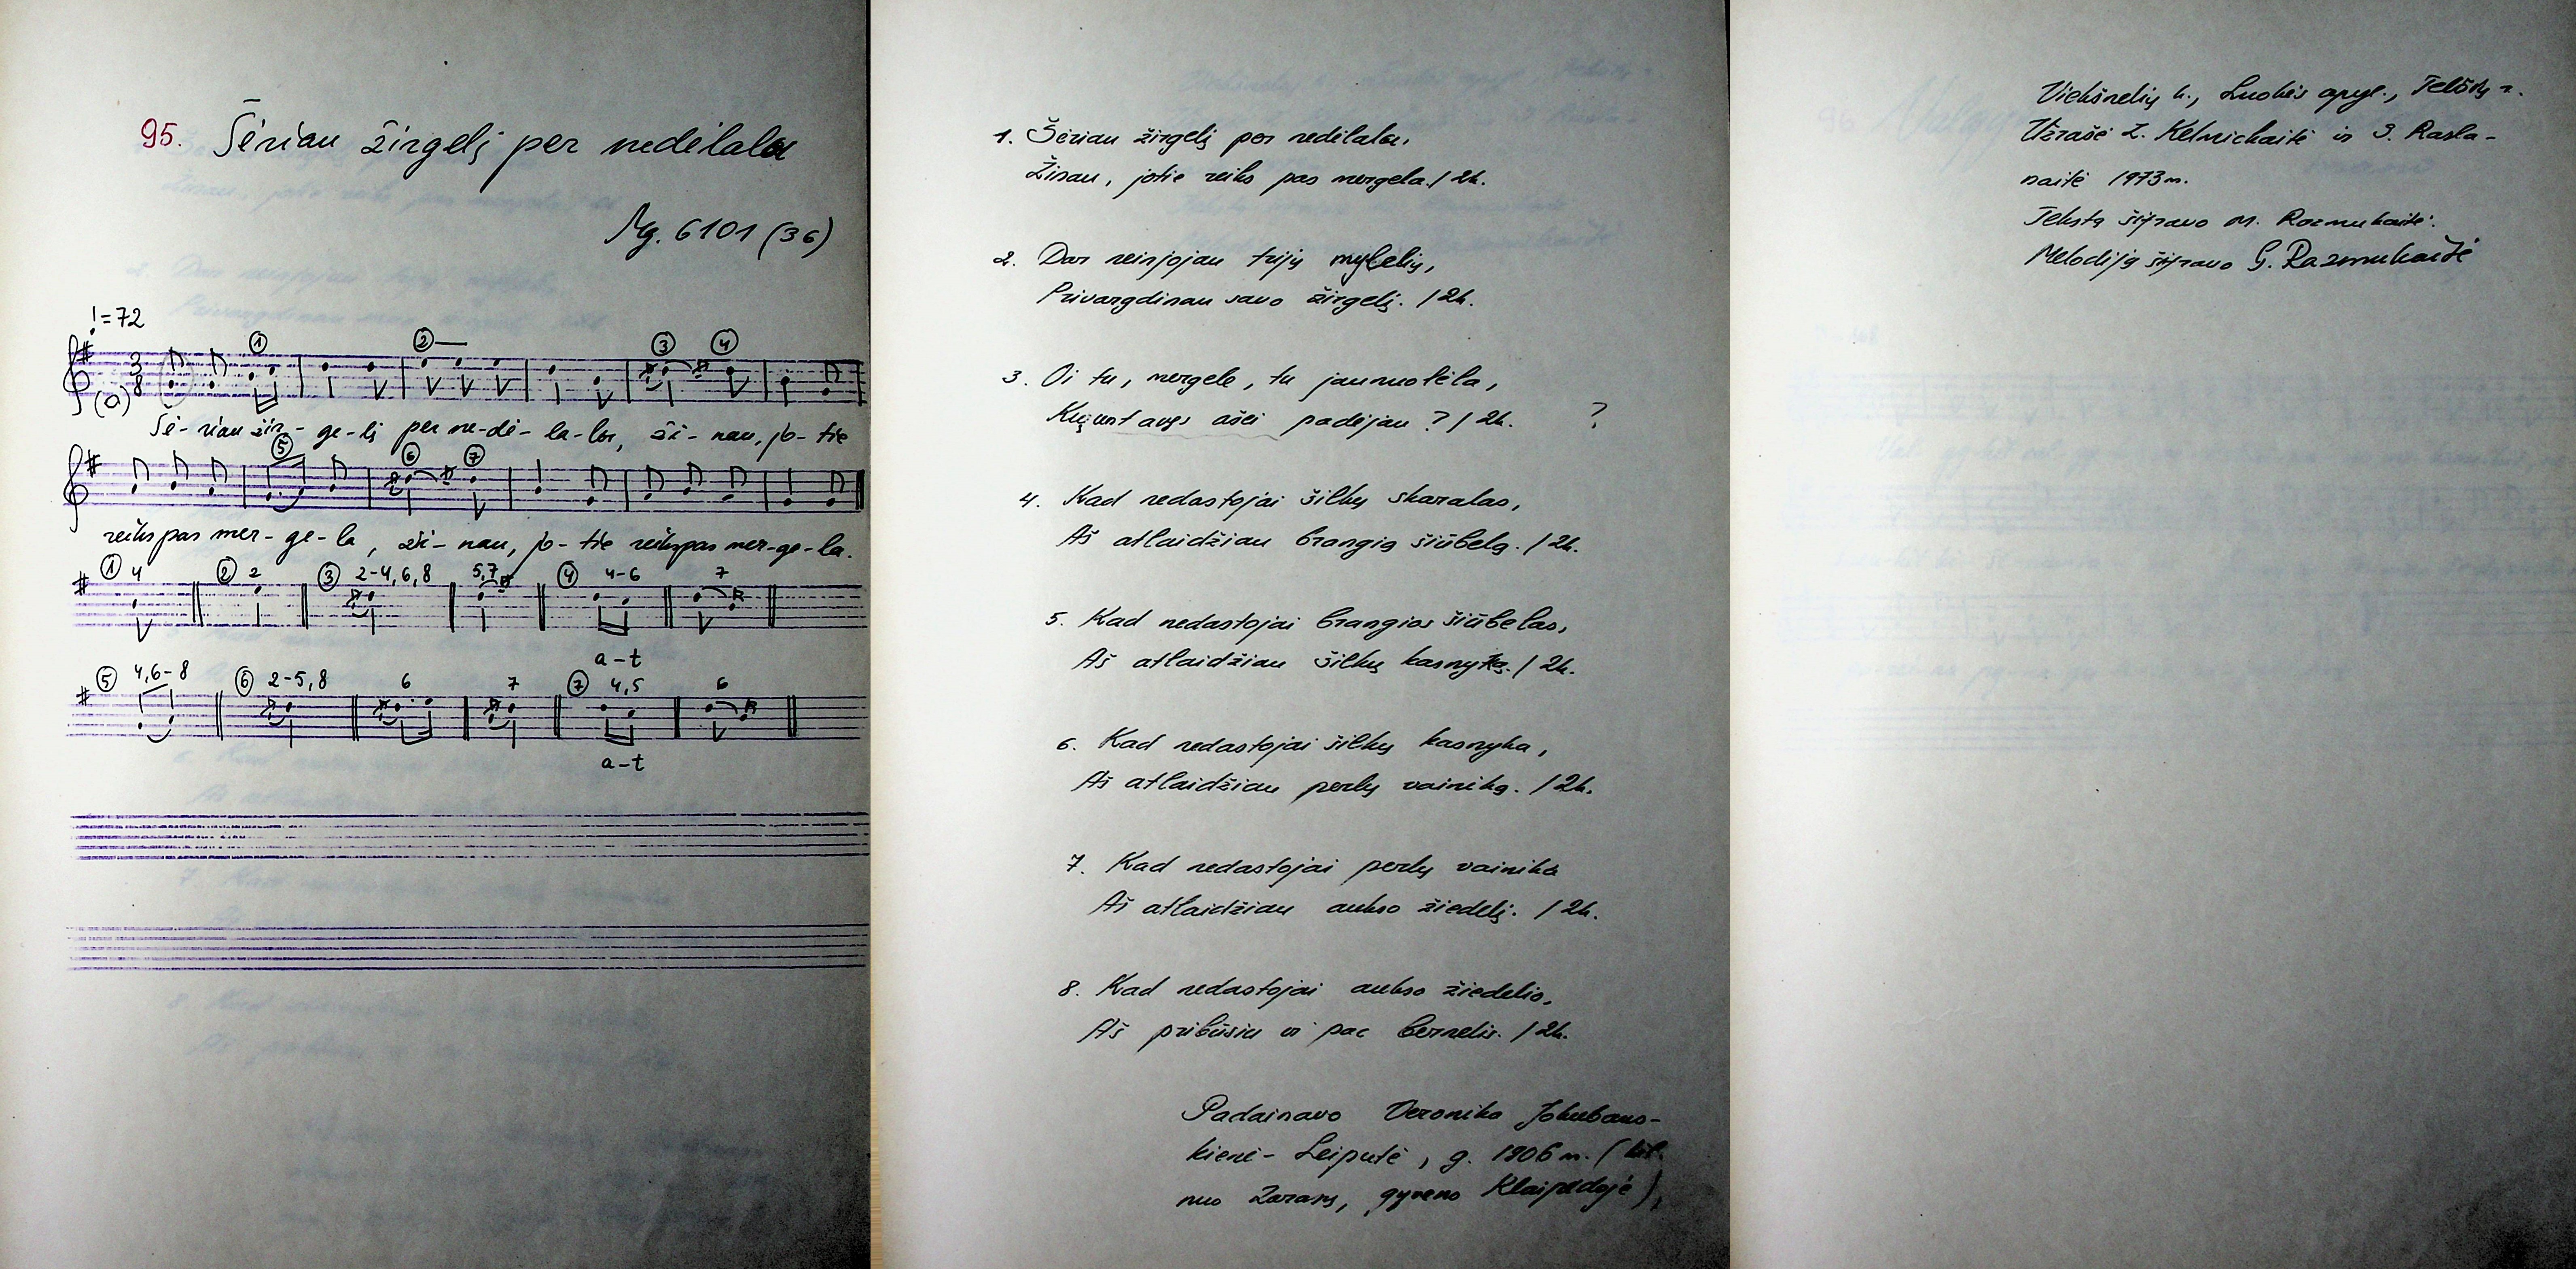 95. Šėriau žirgelį per nedėlala
Mg. 6101 (36)
♩=72
① ②— ③ ④
3/8
(a)
Šė-riau žir-ge-lį per ne-dė-la-la, ži-nau, jo-tie
⑤ ⑥ ⑦
reiks pas mer-ge-la, ži-nau, jo-tie reiks pas mer-ge-la.
① 4 ② 2 ③ 2-4,6,8 5,7 ④ 4-6 7
a-t
⑤ 4,6-8 ⑥ 2-5,8 6 7 ⑦ 4,5 6
a-t
1. Šėriau žirgelį per nedėlala,
Žinau, jotie reiks pas mergela. / 2k.
2. Dar neinjojau trijų mylelių,
Privargdinau savo žirgelį. / 2k.
3. Oi tu, mergele, tu jaunuolėla,
ašei padėjau ? / 2k. ?
4. Kad nedastojai šilkų skaralas,
Aš atlaidžiau brangią šiūbelą. / 2k.
5. Kad nedastojai brangios šiūbelas,
Aš atlaidžiau šilkų kasnyką. / 2k.
6. Kad nedastojai šilkų kasnyka,
Aš atlaidžiau perlų vainiką. / 2k.
7. Kad nedastojai perlų vainika
Aš atlaidžiau aukso žiedelį. / 2k.
8. Kad nedastojai aukso žiedelio,
Aš pribūsiu ir pac bernelis. / 2k.
Padainavo Veronika Jakubaus-
kienė-Leiputė, g. 1906 m. (kil.
nuo Zarasų, gyveno Klaipėdoje),
Viekšnelių k., Luokės apyl., Telšių r.
Užrašė Z. Kelmickaitė ir S. Rasla-
naitė 1973 m.
Tekstą šifravo M. Razmukaitė.
Melodiją šifravo G. Razmukaitė